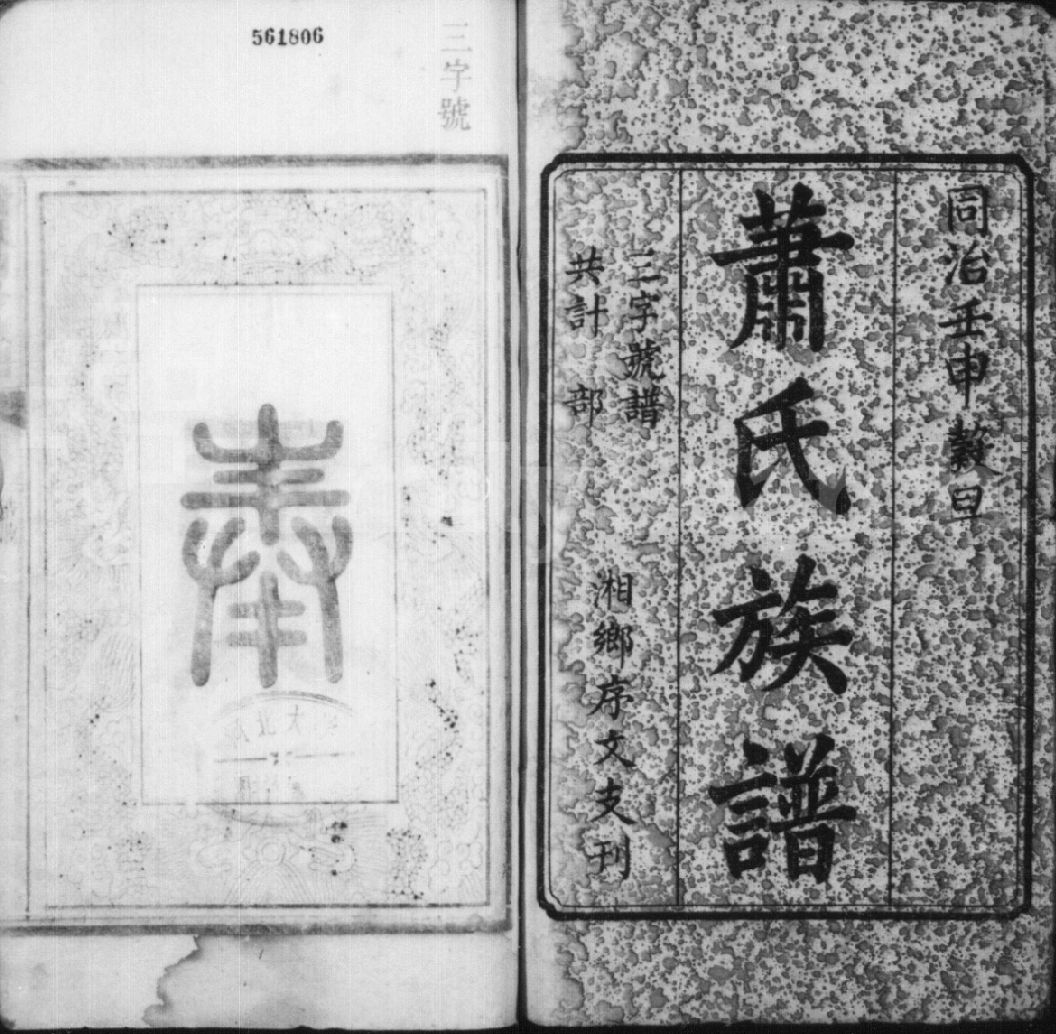 同治壬申穀旦
蕭氏族譜
三字號譜
共計 部
湘鄉序文支刊
三字號
561806
奉